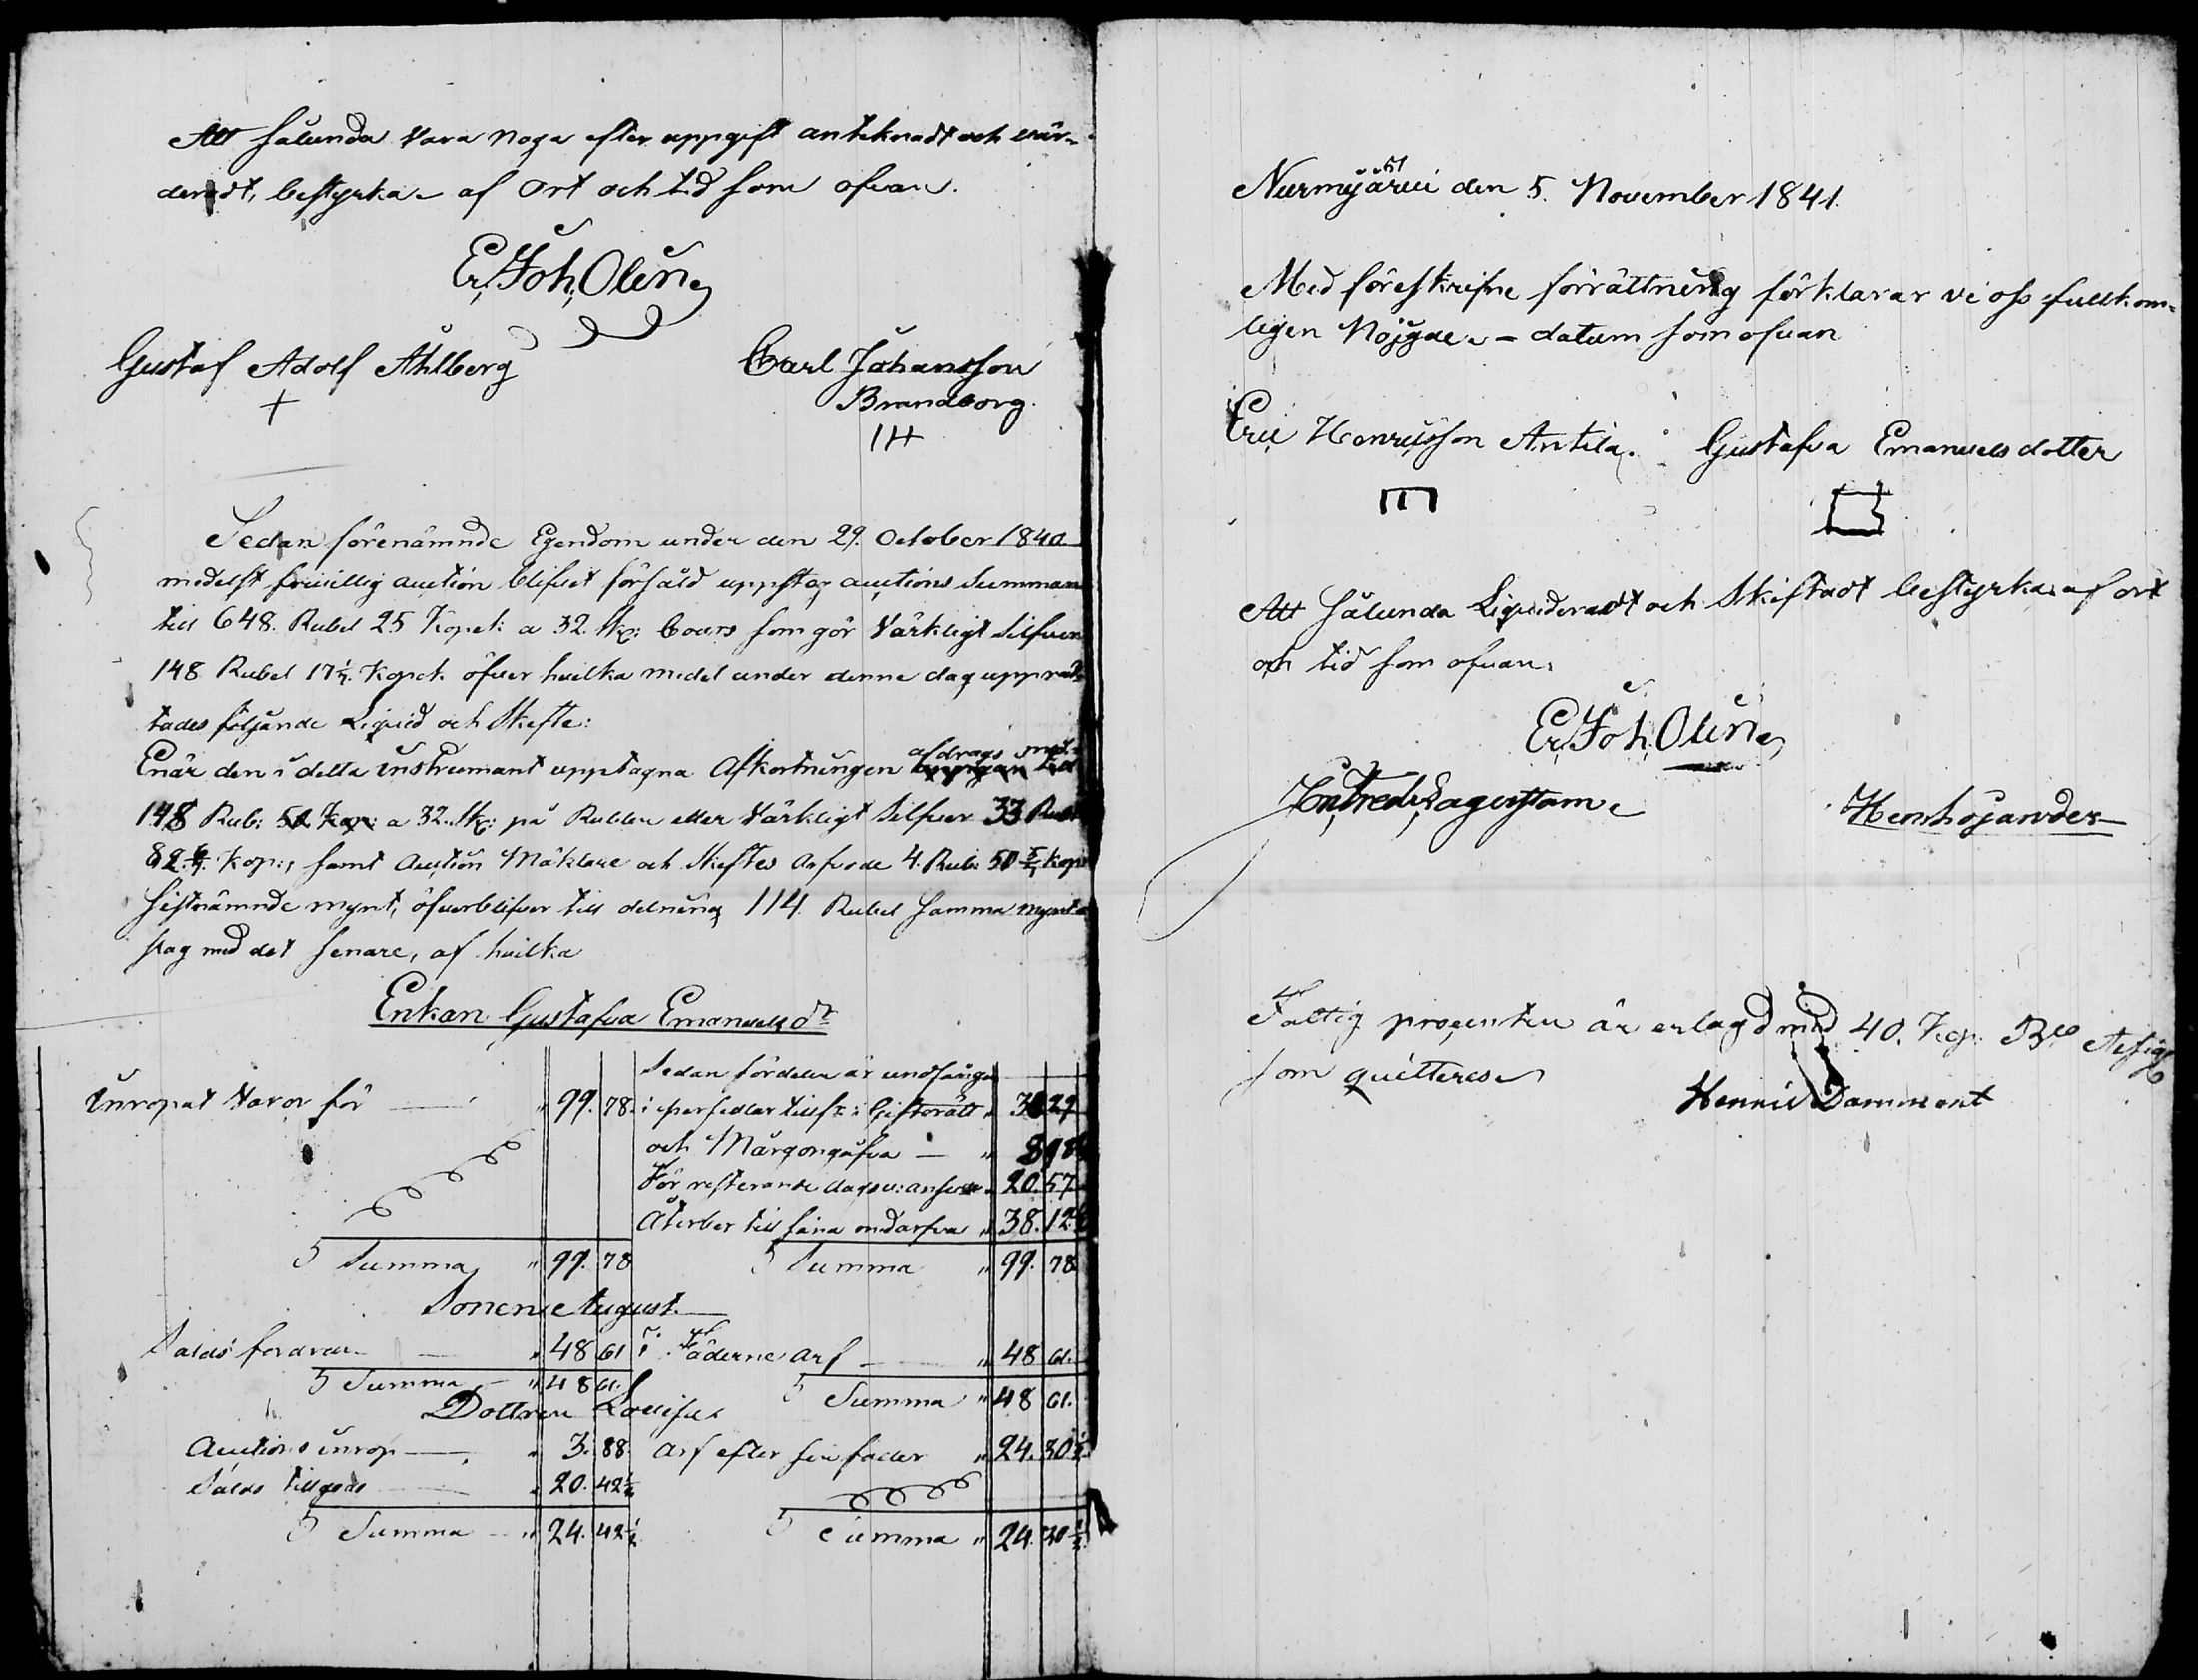 Att sålunda vara noga efter uppgift anteknadt och vär-
deradt, bestyrka af Ort och tid som ofvan.
Er. Joh. Olin
Gustaf Adolf Ahlberg
Carl Johansson
Brandborg.
Sedan förenämnde Egendom under den 29. October 1840
medelst frivillig auction blifvit försåld uppstog auctions Summan
till 648. Rubel 25 Kopek: a 32. Sk: Cours som gör Värkligt Silfver
148 Rubel 17 1/7. Kopek. öfver hvilka medel under denne dag upprät-
tades följande Liqvid och Skefte:
Enär den i detta instrumant upptagna Afkortningen afdrages med
148 Rub: a 32. Sk: på Rubeln eller Värkligt Silfver 33 Rub
82 6/7. Kop:, samt Auction Mäklare och Skiftes Arfvode 4. Rub: 50 2/7 Kop:
sistnämnde mynt, öfverblifver till delning 114. Rubel samma mynt
slag med det senare, af hvilka
Enkan Gustafva Emanuelsdr
Sedan fördelen är undfången
Inropat Varor för " 99. 78. i persedlar tillk: i Giftorätt
och Märgongåfva
För resterande dagsv: " 20. 57
Återber till sina " 38. 12
Summa " 99. 78 Summa " 99. 78
Sonen August.
Saldo fordran " 48 61 i Fäderne arf " 48 61.
Summa " 48 61. Summa " 48 61.
Dottren Lovisa
Auctions inrop " 3. 88. Arf efter sin fader " 24. 30 1/2
Saldo tillgodo " 20. 42 1/2
Summa " 24. 42 1/2 Summa " 24. 30 1/2
Nurmijärvi den 5. November 1841.
Med föreskrifne förrättning förklarar vi oss fullkom-
ligen Nöjgde - datum som ofvan
Eric Henricsson Antila. Gustafva Emanuels dotter
Att sålunda Liqviderat och Skiftadt bestyrkas af ort
och tid som ofvan.
Er. Joh. Olin
Fredr. Lagerstam
Fattig procenten är erlagd med 40. Kop. Bco Assig
som quitteres
Henric Dammert